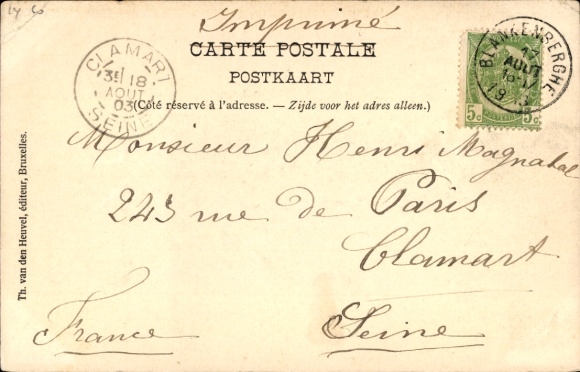 Imprimé
CARTE POSTALE
POSTKAART
(Côté réservé à l'adresse. — Zijde voor het adres alleen.)
CLAMART
18
AOUT
03
SEINE
BLANKENBERGHE
AOUT
5c 5c
Monsieur Henri
243 rue de Paris
Clamart
Seine
France
Th. van den Heuvel, éditeur, Bruxelles.